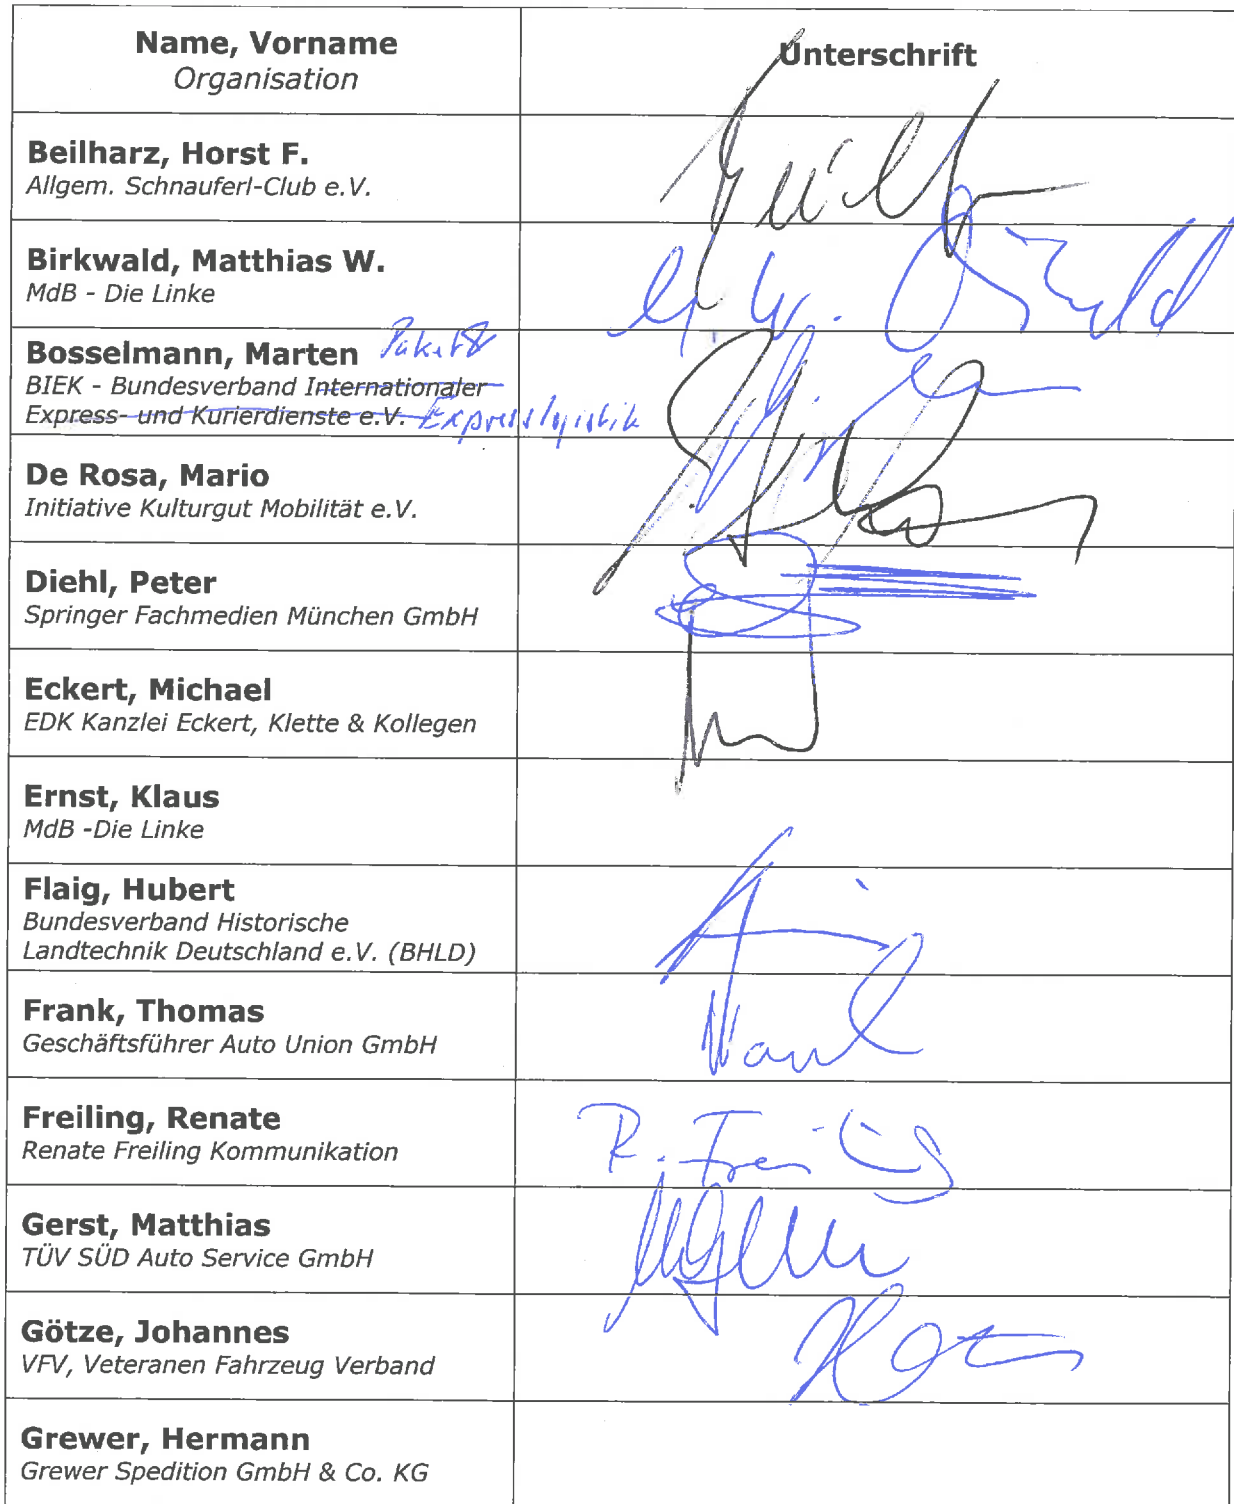 Name, Vorname
Organisation
Unterschrift
Beilharz, Horst F.
Allgem. Schnauferl-Club e.V.
Birkwald, Matthias W.
MdB - Die Linke
Bosselmann, Marten Paket &
BIEK - Bundesverband Internationaler
Express- und Kurierdienste e.V. Expresslogistik
De Rosa, Mario
Initiative Kulturgut Mobilität e.V.
Diehl, Peter
Springer Fachmedien München GmbH
Eckert, Michael
EDK Kanzlei Eckert, Klette & Kollegen
Ernst, Klaus
MdB -Die Linke
Flaig, Hubert
Bundesverband Historische
Landtechnik Deutschland e.V. (BHLD)
Frank, Thomas
Geschäftsführer Auto Union GmbH
Freiling, Renate
Renate Freiling Kommunikation
R. Freiling
Gerst, Matthias
TÜV SÜD Auto Service GmbH
Götze, Johannes
VFV, Veteranen Fahrzeug Verband
Grewer, Hermann
Grewer Spedition GmbH & Co. KG